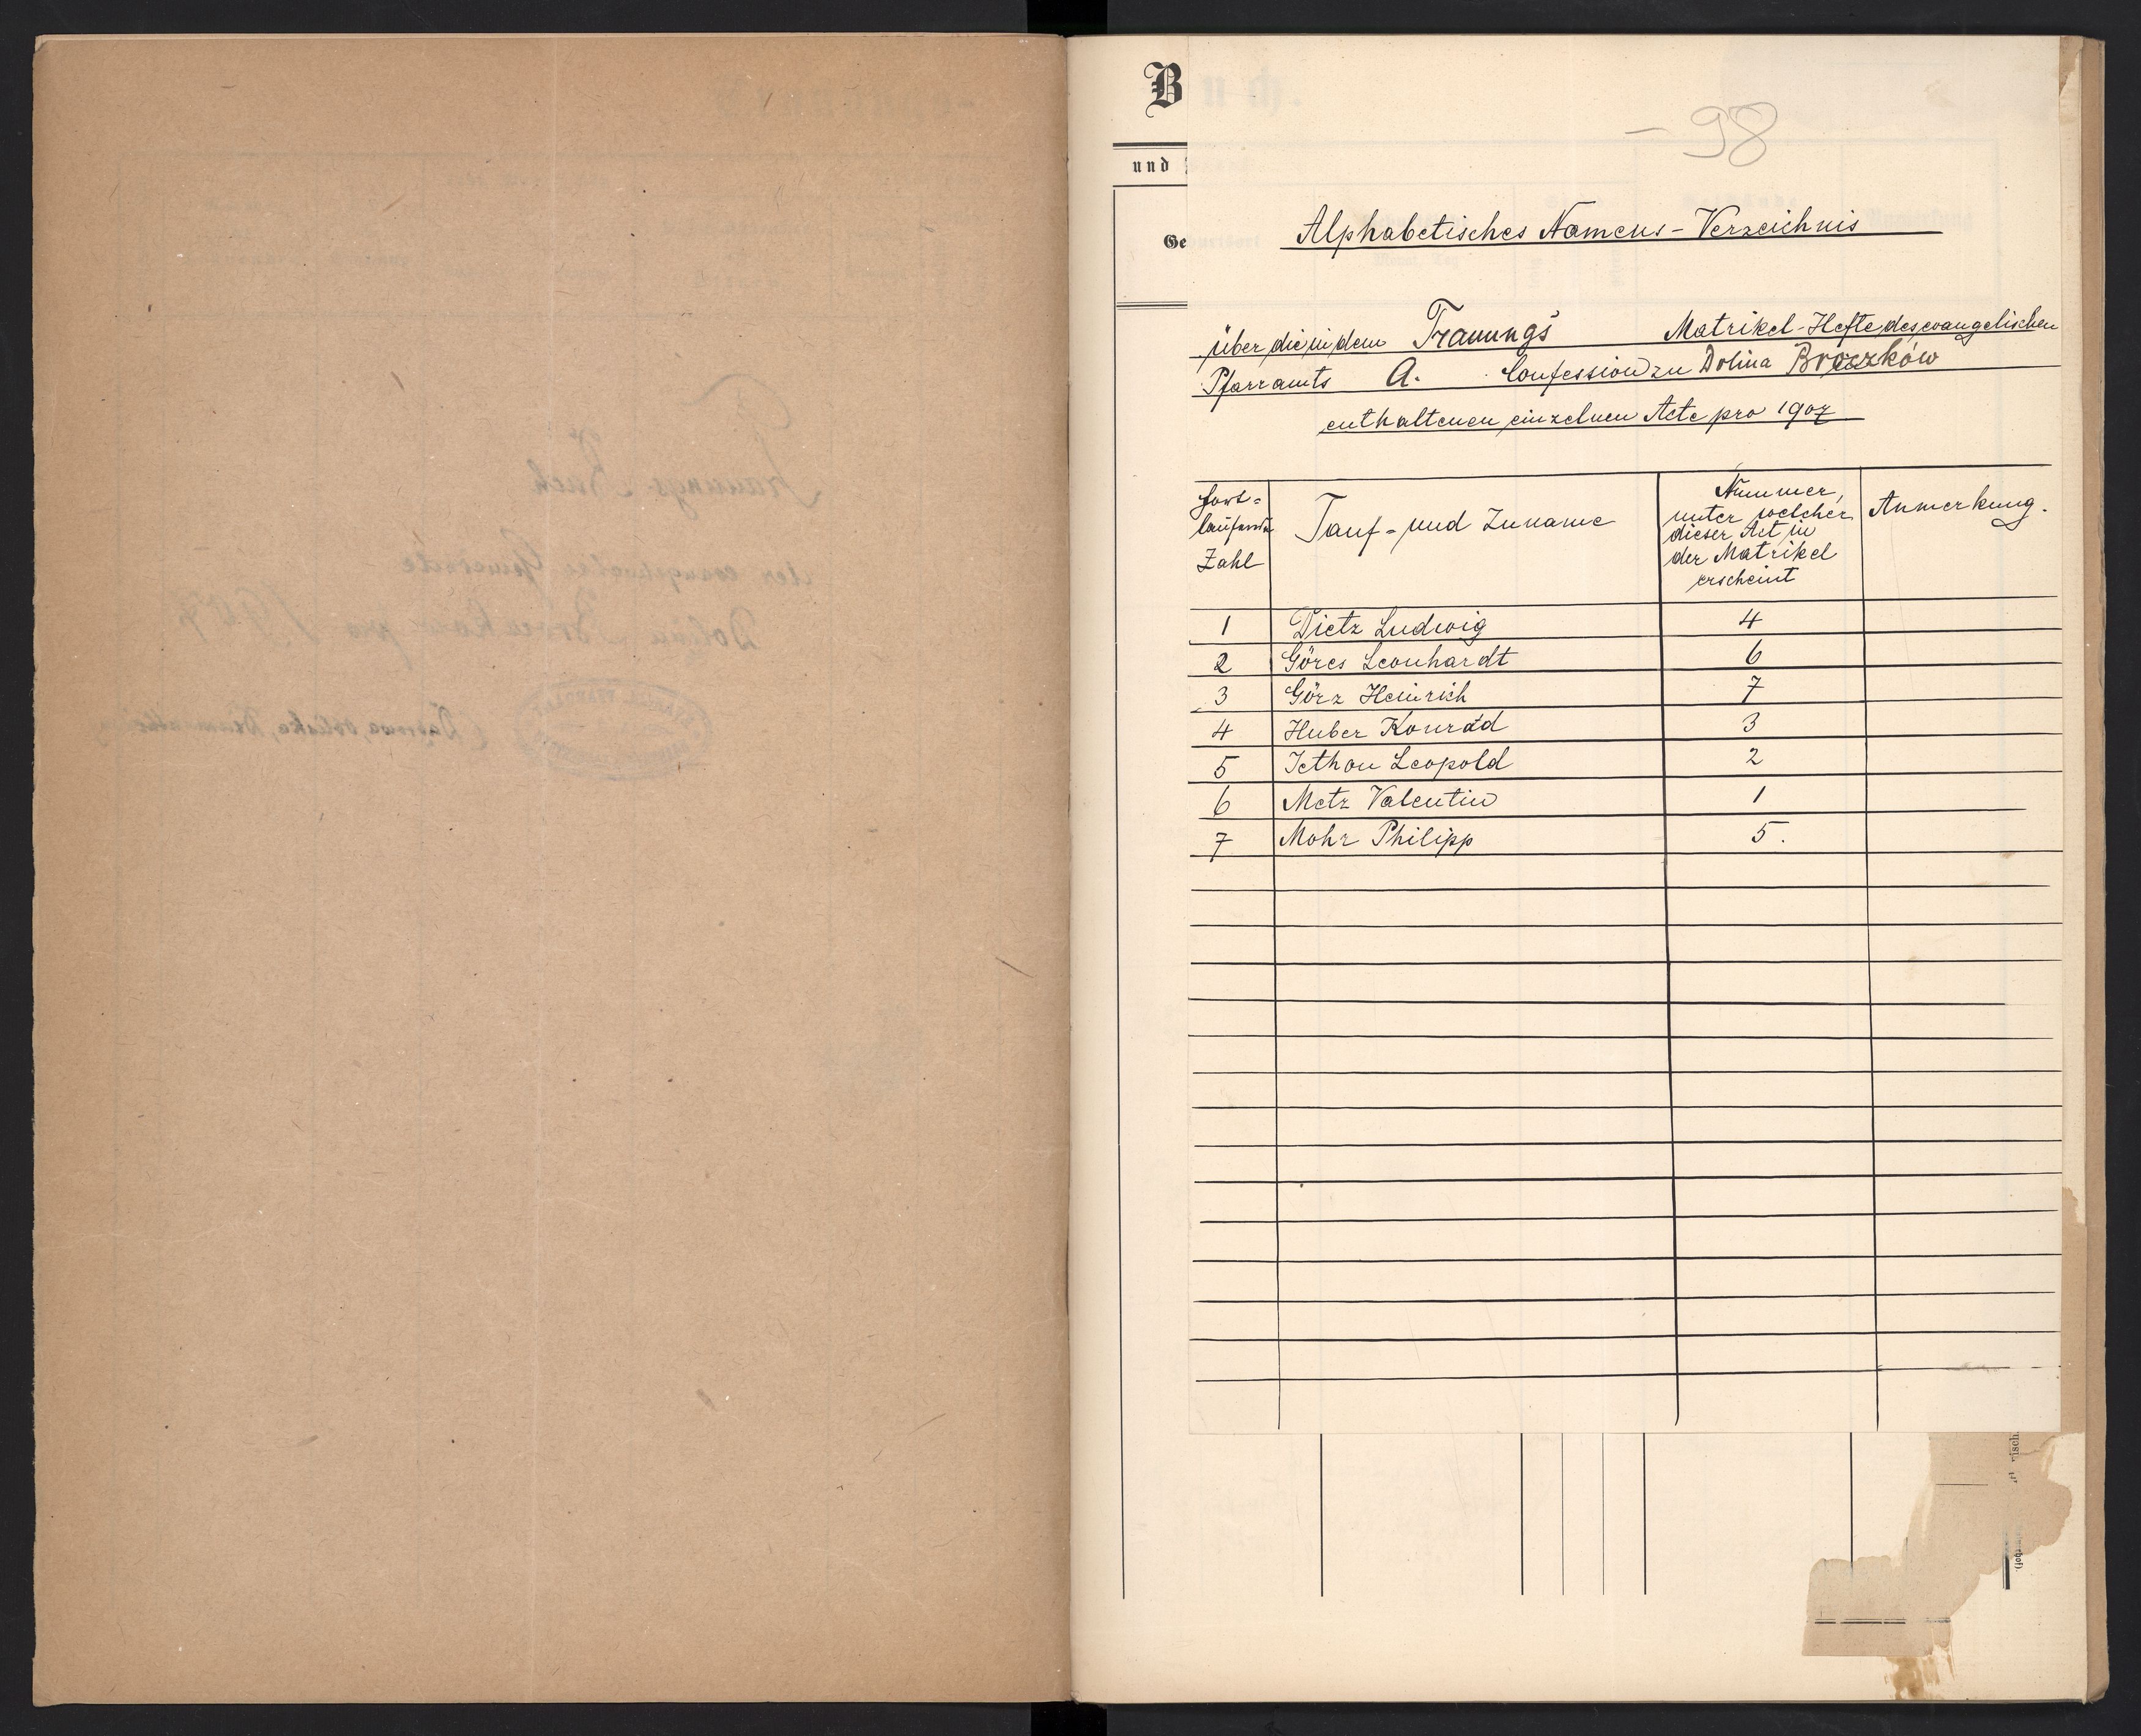 B
98
und
Ge
Alphabetisches Namens-Verzeichnis
über die in dem Trauungs Matrikel-Hefte des evangelischen
Pfarramts A. Confession zu Dolina Broczków
enthaltenen einzelnen Acte pro 1907
Fort-
laufende
Zahl
Tauf- und Zuname
Nummer,
unter welcher
dieser Act in
der Matrikel
erscheint
Anmerkung.
1 Dietz Ludwig 4
2 Göres Leonhardt 6
3 Görz Heinrich 7
4 Huber Konrad 3
5 Jethon Leopold 2
6 Metz Valentin 1
7 Mohr Philipp 5.